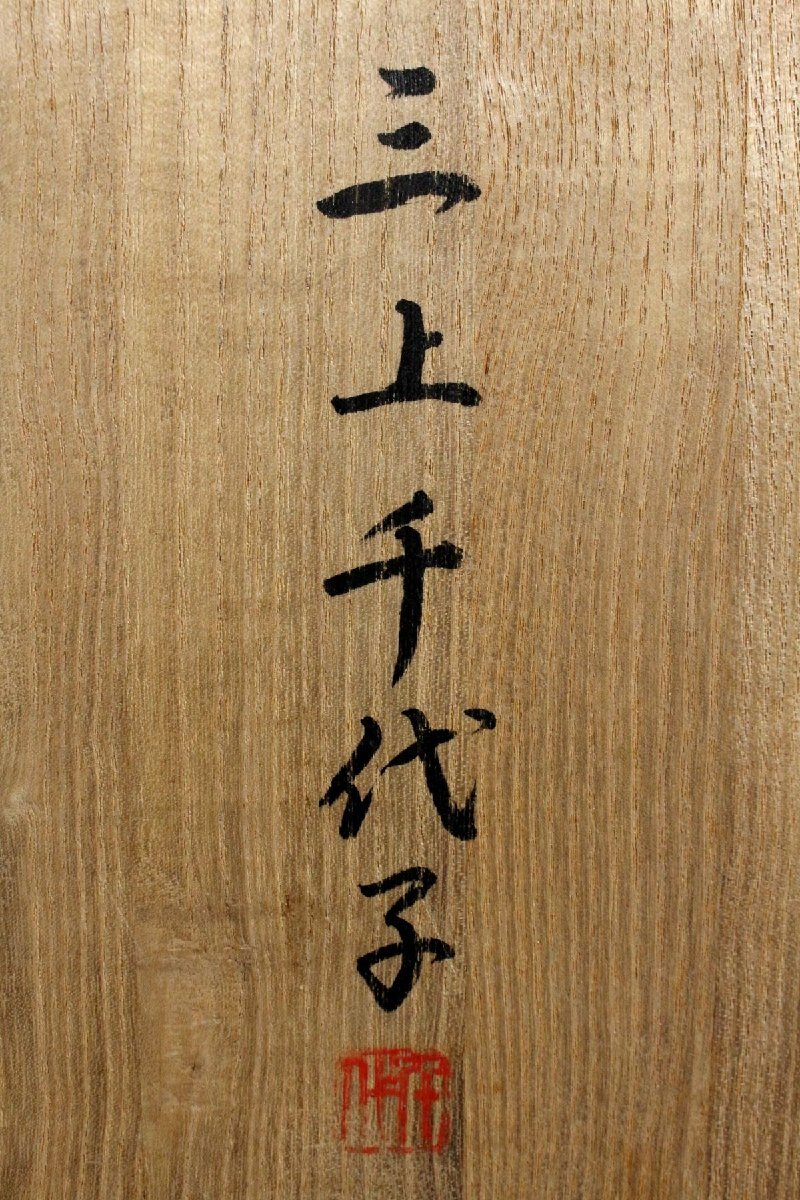 三上千代子